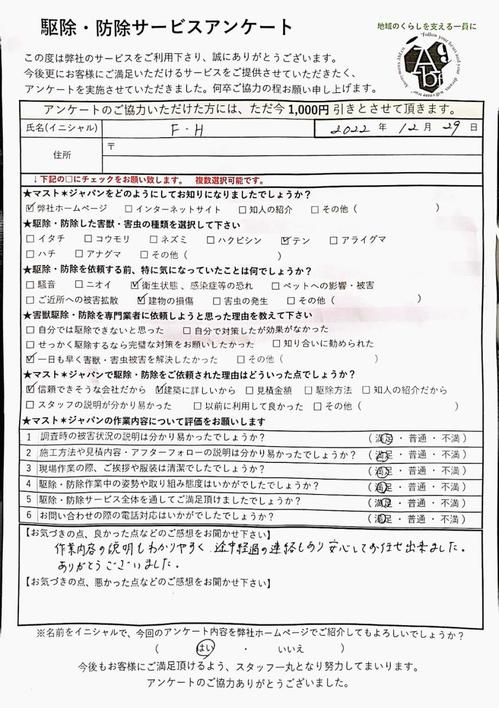 駆除・防除サービスアンケート
地域のくらしを支える一員に
この度は弊社のサービスをご利用下さり、誠にありがとうございます。
今後更にお客様にご満足いただけるサービスをご提供させていただきたく、
アンケートを実施させていただきました。何卒ご協力の程お願い申し上げます。
アンケートのご協力いただけた方には、ただ今1,000円引きとさせて頂きます。
氏名(イニシャル) F・H 2022 年 12 月 29 日
住所 〒
↓下記の□にチェックをお願い致します。 複数選択可能です。
★マスト＊ジャパンをどのようにしてお知りになりましたでしょうか？
☑弊社ホームページ □インターネットサイト □知人の紹介 □その他（ ）
★駆除・防除した害獣・害虫の種類を選択して下さい
□イタチ □コウモリ □ネズミ □ハクビシン ☑テン □アライグマ
□ハチ □アナグマ □その他（ ）
★駆除・防除を依頼する前、特に気になっていたことは何でしょうか？
□騒音 □ニオイ ☑衛生状態、感染症等の恐れ □ペットへの影響・被害
□ご近所への被害拡散 ☑建物の損傷 □害虫の発生 □その他（ ）
★害獣駆除・防除を専門業者に依頼しようと思った理由を教えて下さい
□自分では駆除できないと思った □自分で対策したが効果がなかった
□せっかく駆除するなら完璧な対策をお願いしたかった □知り合いに勧められた
☑一日も早く害獣・害虫被害を解決したかった □その他（ ）
★マスト＊ジャパンで駆除・防除をご依頼された理由はどういった点でしょうか？
☑信頼できそうな会社だから ☑建築に詳しいから □見積金額 □駆除方法 □知人の紹介だから
□スタッフの説明が分かり易かった □以前に利用して良かった □その他（ ）
★マスト＊ジャパンの作業内容について評価をお願いします
1 調査時の被害状況の説明は分かり易かったでしょうか？ （満足・普通・不満）
2 施工方法や見積内容・アフターフォローの説明は分かり易かったでしょうか？ （満足・普通・不満）
3 現場作業の際、ご挨拶や服装は清潔でしたでしょうか？ （満足・普通・不満）
4 駆除・防除作業中の姿勢や取り組み態度はいかがでしたでしょうか？ （満足・普通・不満）
5 駆除・防除サービス全体を通してご満足頂けましたでしょうか？ （満足・普通・不満）
6 お問い合わせの際の電話対応はいかがでしたでしょうか？ （満足・普通・不満）
【お気づきの点、良かった点などのご感想をお聞かせ下さい】
作業内容の説明もわかりやすく、途中経過の連絡もあり安心してお任せ出来ました。
ありがとうございました。
【お気づきの点、悪かった点などのご感想をお聞かせ下さい】
※名前をイニシャルで、今回のアンケート内容を弊社ホームページでご紹介してもよろしいでしょうか？
（ はい ・ いいえ ）
今後もお客様にご満足頂けるよう、スタッフ一丸となり努力してまいります。
アンケートのご協力ありがとうございました。